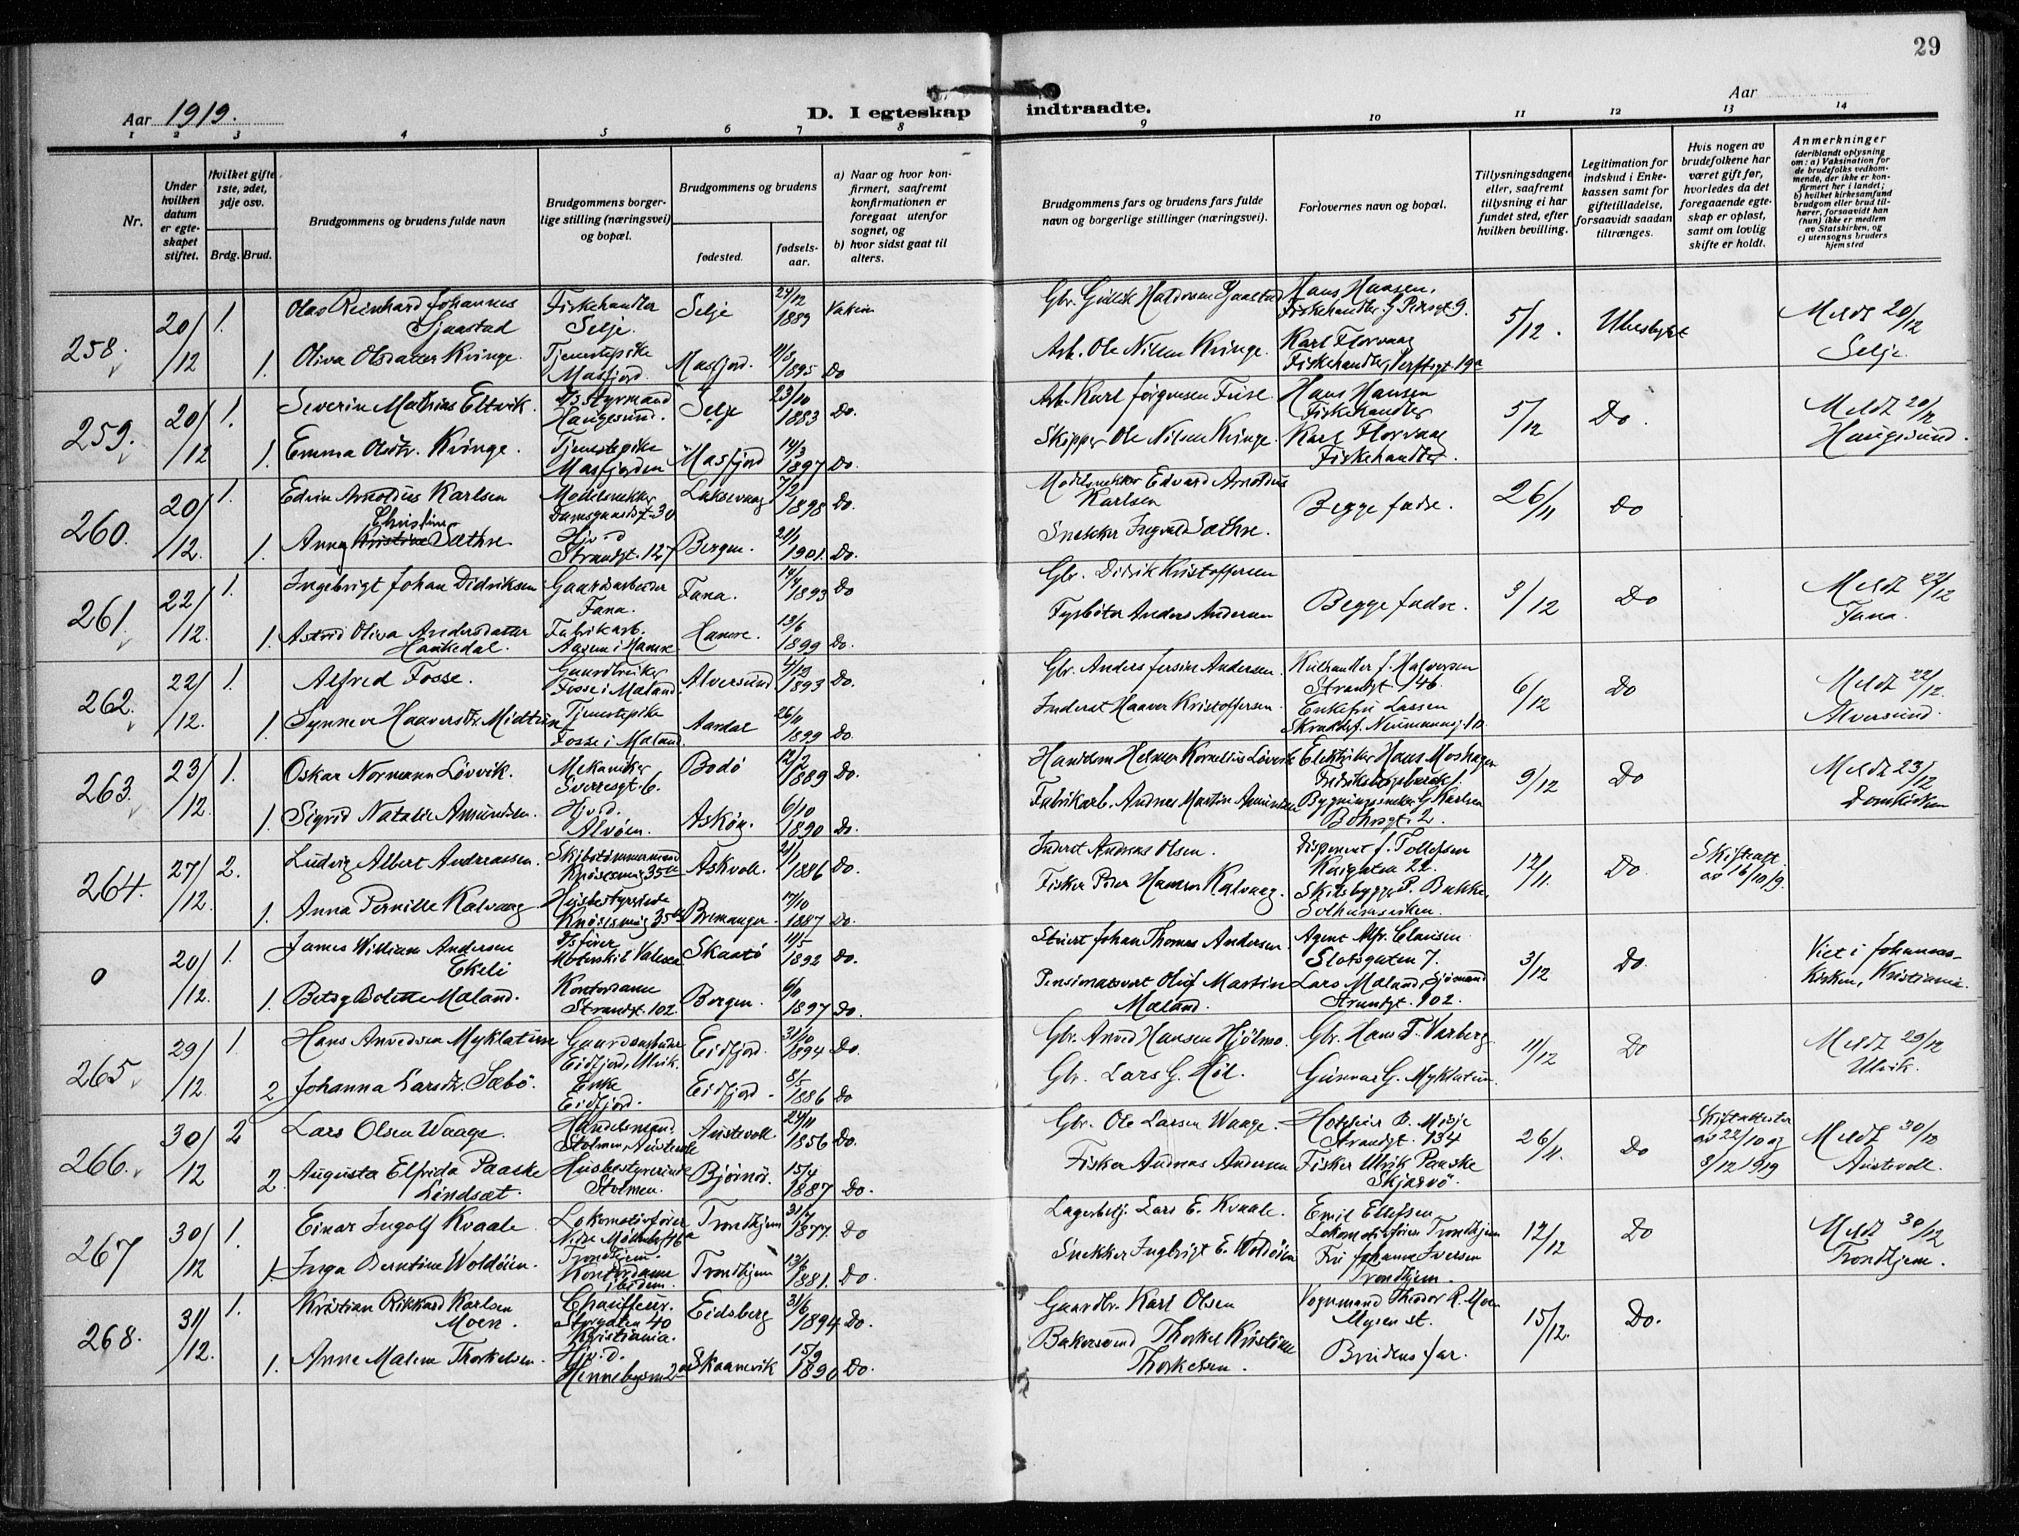 29
Aar 1919.
D. I egteskap indtraadte.
Aar
1 2 3 4 5 6 7 8 9 10 11 12 13 14
Nr.
Under hvilken datum er egteskapet stiftet.
Hvilket gifte 1ste, 2det, 3dje osv.
Brdg. Brud.
Brudgommens og brudens fulde navn
Brudgommens borgerlige stilling (næringsvei) og bopæl.
Brudgommens og brudens
fødested.
fødselsaar.
a) Naar og hvor konfirmert, saafremt konfirmationen er foregaat utenfor sognet, og
b) hvor sidst gaat til alters.
Brudgommens fars og brudens fars fulde navn og borgerlige stillinger (næringsvei).
Forlovernes navn og bopæl.
Tillysningsdagene eller, saafremt tillysning ei har fundet sted, efter hvilken bevilling.
Legitimation for indskud i Enkekassen samt for giftetilladelse, forsaavidt saadan tiltrænges.
Hvis nogen av brudefolkene har været gift før, hvorledes da det foregaaende egteskap er opløst, samt om lovlig skifte er holdt.
Anmerkninger
(deriblandt oplysning om: a) Vaksination for de brudefolks vedkommende, der ikke er konfirmert her i landet; b) hvilket kirkesamfund brudgom eller brud tilhører, forsaavidt han (hun) ikke er medlem av Statskirken, og c) utensogns bruders hjemsted
258. 20/12 1. Olas Reinhard Johannes Gjaastad Fiskehandler Selje. Selje 24/12 1889 Gbr. Halvorsen Gjaastad Hans Hansen, Fiskehandler 5/12. Ubesbyttet Meldt 20/12 Selje.
1. Oliva Olsdatter Kvinge. Tjenestepike Masfjord. Masfjord. 1895 Do Arb. Ole Nilsen Kvinge. Karl Florvaag Fiskehandler, Verftsgt 19a
259. 20/12 1. Severin Mathias Eltvik. Styrmand Haugesund. Selje 23/10 1883 Do. Arb. Karl Jørgensen Hans Hansen Fiskehandler 5/12 Do. Meldt 20/12 Haugesund.
1. Emma Olsdtr. Kvinge. Tjenestepike Masfjorden Masfjord 14/3 1897 Do. Skipper Ole Nilsen Kvinge. Karl Florvaag Fiskehandler.
260. 20/12. 1. Edvin Arnoldus Karlsen Modelsnekker Damsgaardsgt. 30 Laksevaag 7/2 1898 Do. Modelsnekker Edvard Arnoldus Karlsen Begge fædre. 26/11 Do
1. Anna Christine Sæthre. Hjv.d Strandgt. 127 Bergen. 1901. Do. Snekker Ingvald Sæthre.
261. 22/12. 1. Ingebrigt Johan Didriksen Gaardsarbeider Fana. Fana. 14/4 1893 Do Gbr. Didrik Kristoffersen Begge fædre. 3/12 Do Meldt 22/12 Fana.
1. Astrid Oliva Andersdatter Haukedal. Fabrikarb. i Hamre Hamre 13/6 1899 Do. Fyrbøter Anders Andersen
262. 22/12. 1. Alfred Fosse. Gaardbruker Fosse i Maland. Alversund 4/12 1893 Do. Gbr. Anders Andersen. Kulhandler J. Halvorsen Strandgt 146. 6/12 Do Meldt 22/12. Alversund.
1. Synneve Haaversdtr. Midtun Tjenestepike Fosse i Maland. Aardal 26/11 1899 Do. Inderst Haaver Kristoffersen. Enkefru Larsen
263. 23/12. 1. Oskar Normann Løvvik. Mekaniker Sverresgt. 6. Bodø 12/2 1889 Do. Helmer Kornelius Løvvik Elektriker Hans Moshagen 9/12 Do Meldt 23/12 Domkirken
1. Sigrid Natalie Amundsen. Hjv.d. Alvøen. Askøn. 6/10 1890 Do. Fabrikarb. Andreas Martin Amundsen Bygningssnekker G. Karlsen
264. 27/12. 2. Ludvig Albert Andreassen. Skibstømmermand Askvoll. 21/1 1886 Do. Inderst Andreas Olsen. Disponent J. Tollefsen 22. 12/11. Do. Skifteatt. av 16/10/19.
1. Anna Pernille Kalvaag Husbestyrerinde Bremanger. 17/10 1887 Do. Fisker Peer Hansen Kalvaag. Skibsbygger P. Bakke, Solheimsviken.
0 20/12. 1. James William Andersen Ekeli Skaatø 11/5 1892 Do. Stuert Johan Thomas Andersen. Agent Alfr. Clausen Slotsgaten 7. 3/12 Do. Viet i Johanneskirken, Kristiania.
1. Betsy Bolette Maland. Kontordame Strandgt. 102. Bergen. 1897 Do. Pensionatsvert Oluf Martin Maland. Lars Maland, Sjømand Strandgt. 102.
265. 29/12. 1. Hans Arvedsen Myklatun Gaardsarbeider Eidfjord, Ulvik. Eidfjord. 31/10 1894 Do. Gbr. Arved Hansen Hjølmo. Gbr. Hans T. Varberg 11/12 Do Meldt 29/12 Ulvik.
2. Johanna Larsdtr. Sæbø. Enke Eidfjord. Eidfjord. 8/5 1886 Do Gbr. Lars G. Høl. Gunnar G. Myklatun.
266. 30/12 2 Lars Olsen Waage. Handelsmand. Stolmen, Austevoll Austevoll 24/11 1856 Do. Gbr. Ole Larsen Waage. Strandgt. 134 26/11. Do Skifteattester av 22/10 og 3/12 1919 Meldt 30/12 Austevoll.
2. Augusta Elfrida Paaske Lindsæt. Husbestyrerinde Stolmen. Bjørnør. 15/4 1887 Do. Fisker Andreas Andersen Fisker Ulrik Paaske Skjærvø.
267 30/12 1. Einar Ingolf Kvaale. Lokomotivfører Trondhjem. Trondhjem 31/7 1877. Do Lagerbetj. Lars E. Kvaale. Emil Ellefsen Lokomotivfører Trondhjem 12/12 Do Meldt 30/12 Trondhjem.
1. Inga Berntine Woldøien. Kontordame ibidem. Trondhjem 13/6 1881. Do. Snekker Ingbrigt E. Woldøien Fru Johanna Iversen Trondhjem.
268. 31/12. 1. Kristian Rikkard Karlsen Moen. Chauffeur. Storgaten 40 Kristiania. Eidsberg 31/6 1894 Do. Gaardbr. Karl Olsen Vognmand Theodor R. Moen Mysen st. 15/12. Do.
1. Anne Malene Thorkelsen. Hjv.d. Skaanevik 15/9 1890 Do. Bakersvend Thorkel Kristian Thorkelsen. Brudens far.